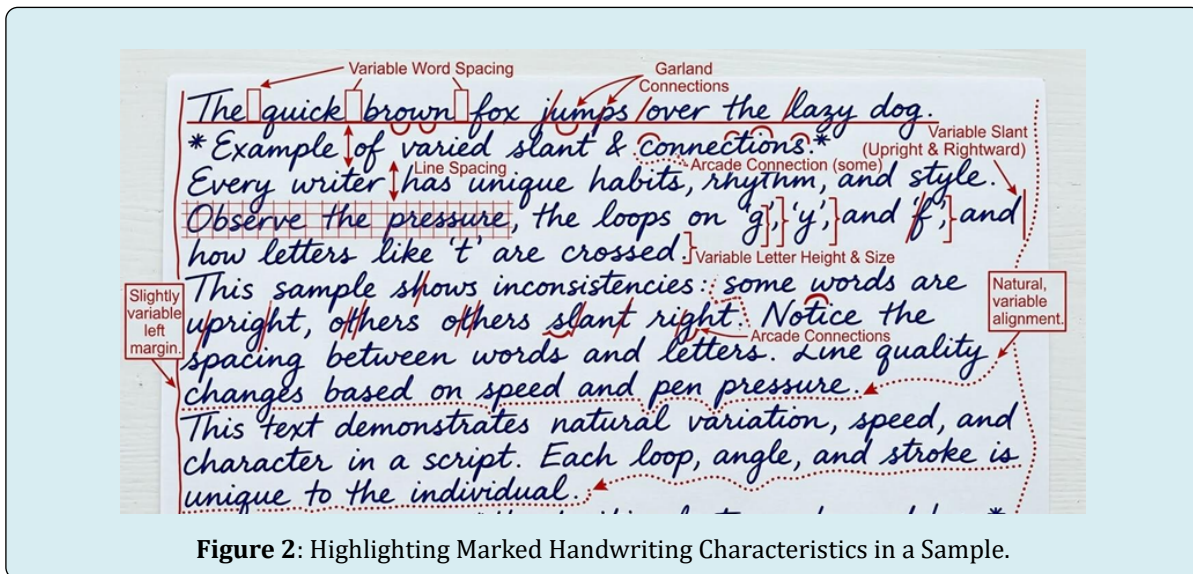 Variable Word Spacing
Garland Connections
The quick brown fox jumps over the lazy dog.
*Example of varied slant & connections.*
Variable Slant (Upright & Rightward)
Line Spacing
Arcade Connection (some)
Every writer has unique habits, rhythm, and style.
Observe the pressure, the loops on 'g', 'y', and 'f', and
how letters like 't' are crossed.
Variable Letter Height & Size
This sample shows inconsistencies: some words are
Slightly variable left margin.
Natural, variable alignment.
upright, others others slant right. Notice the
Arcade Connections
spacing between words and letters. Line quality
changes based on speed and pen pressure.
This text demonstrates natural variation, speed, and
character in a script. Each loop, angle, and stroke is
unique to the individual.
Figure 2: Highlighting Marked Handwriting Characteristics in a Sample.